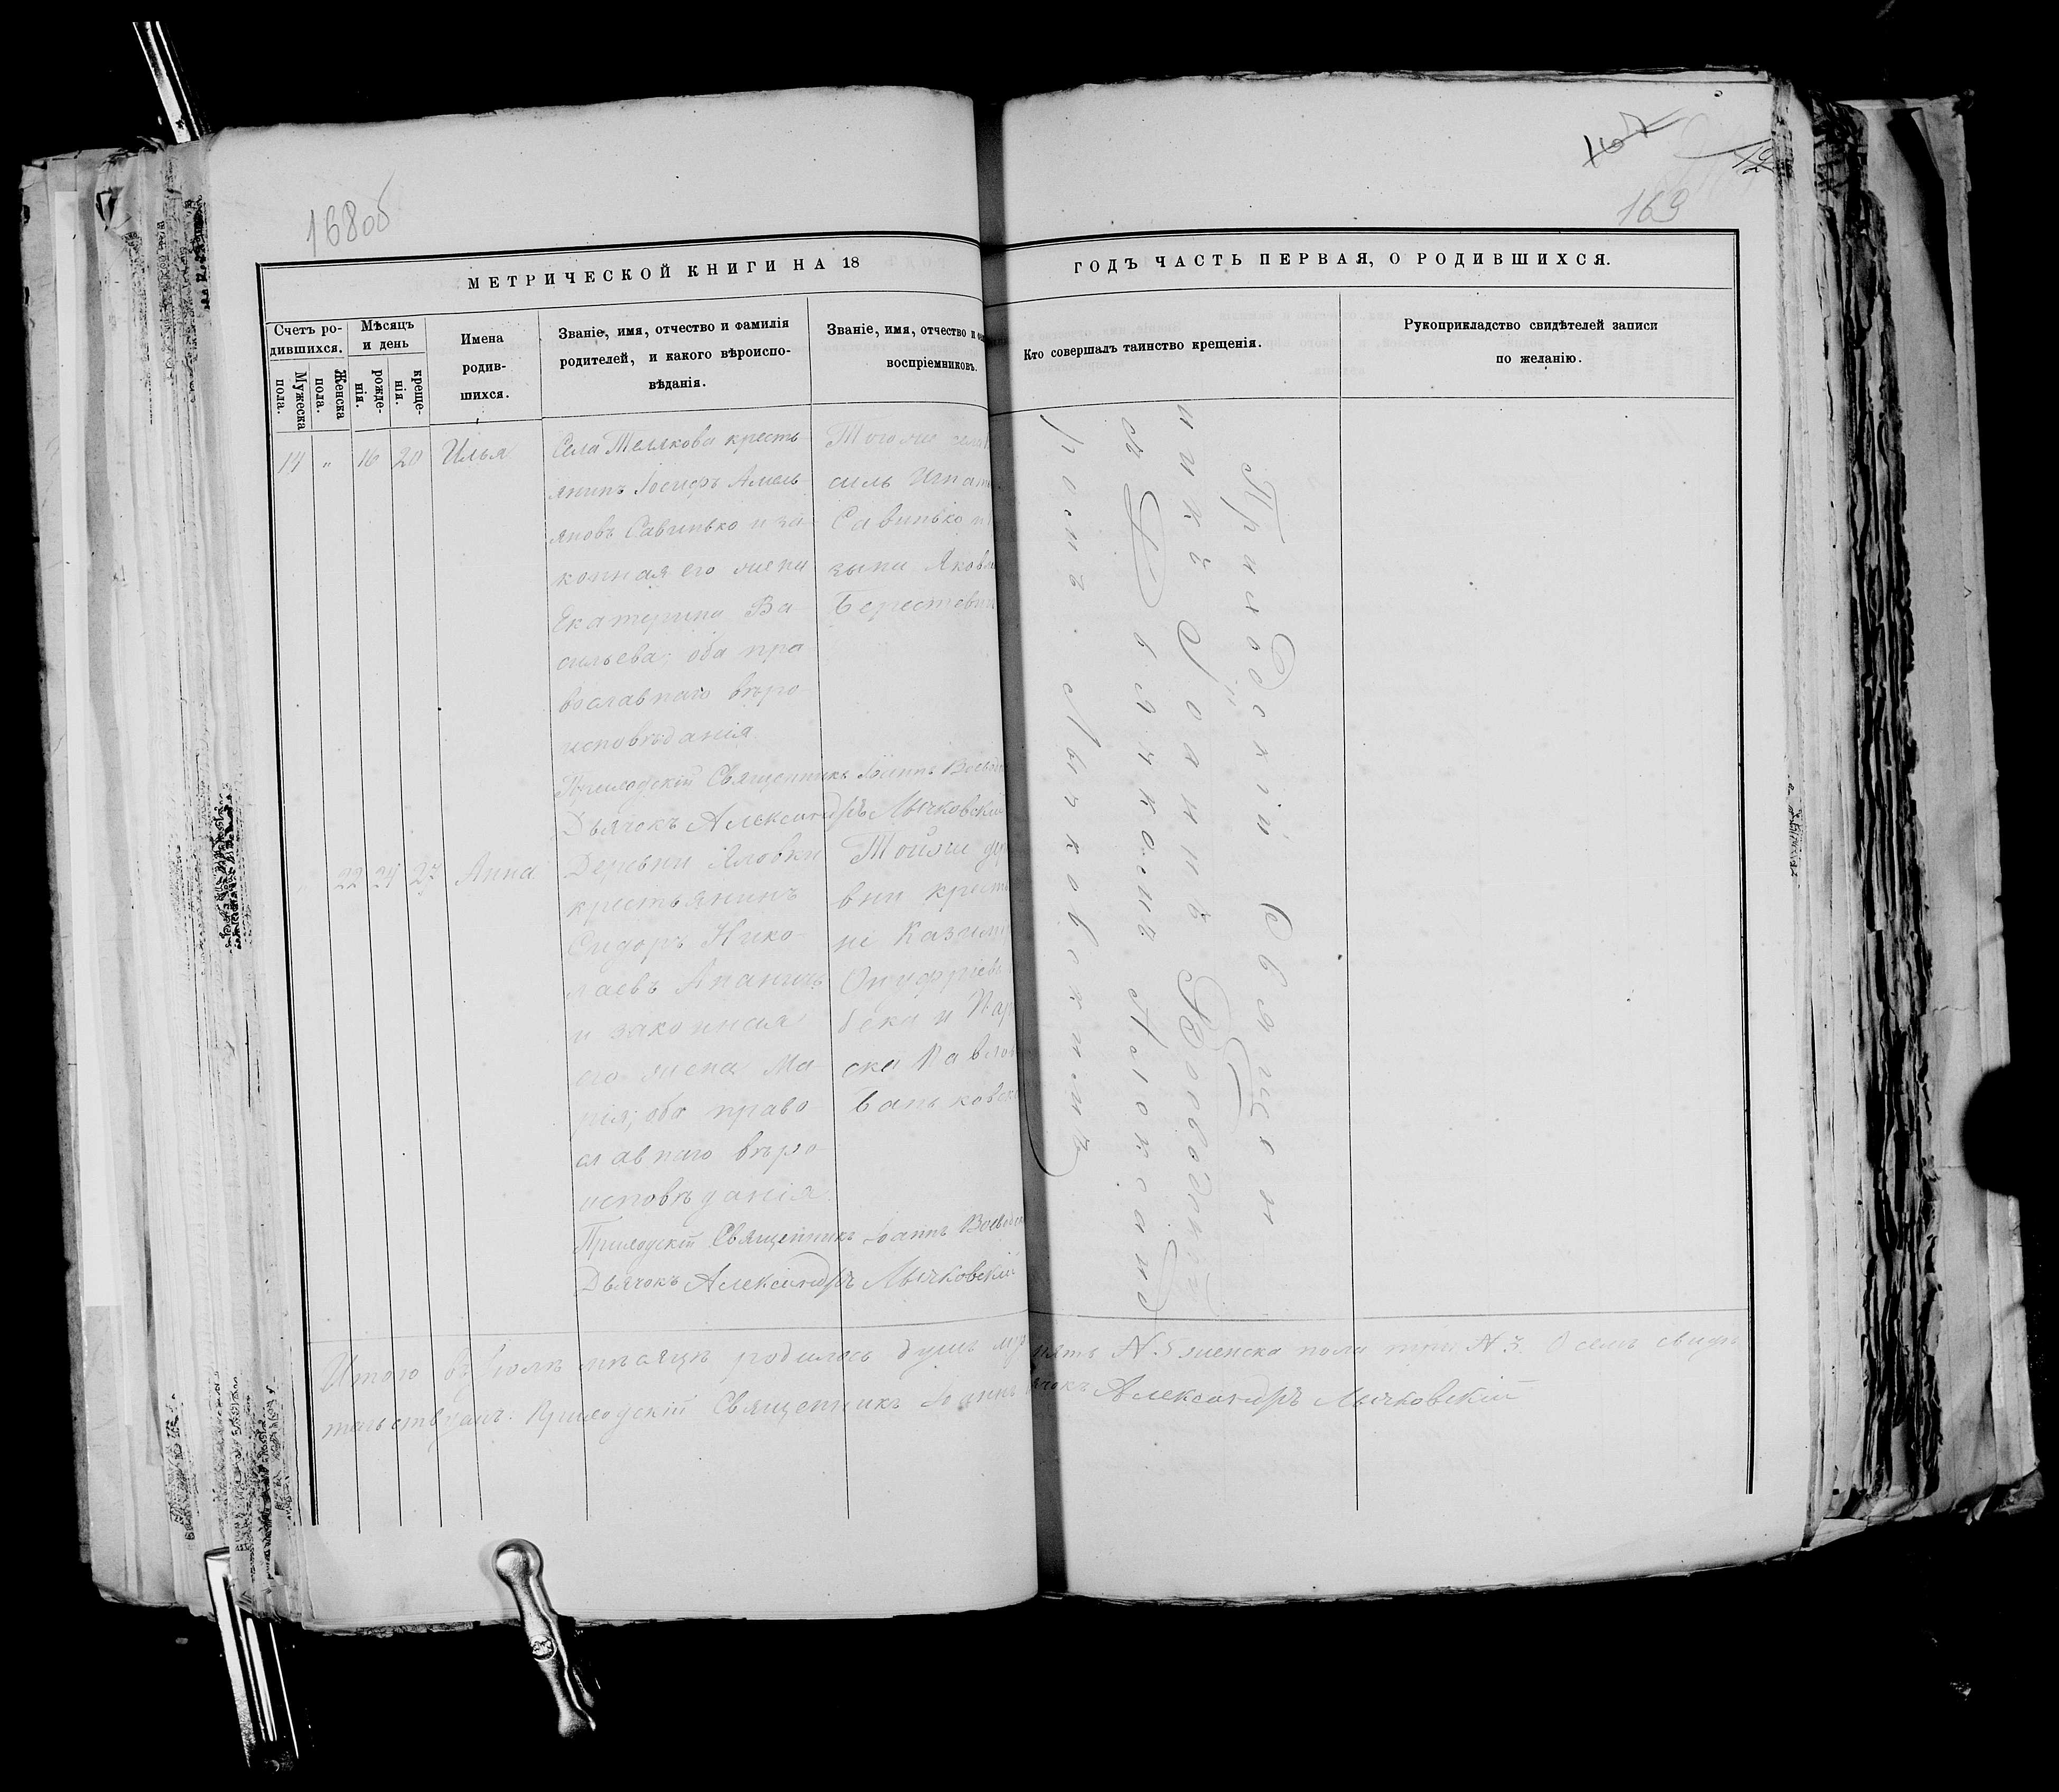 168об
167
169
МЕТРИЧЕСКОЙ КНИГИ НА 18
ГОДЪ ЧАСТЬ ПЕРВАЯ, О РОДИВШИХСЯ.
Счетъ ро-
дившихся.
Мужеска
пола.
Женска
пола.
Мѣсяцъ
и день
рожде-
нія.
креще-
нія.
Имена
родив-
шихся.
Званіе, имя, отчество и фамилія
родителей, и какого вѣроиспо-
вѣданія.
Званіе, имя, отчество и
воспріемниковъ.
Кто совершалъ таинство крещенія.
Рукоприкладство свидѣтелей записи
по желанію.
14 " 16 20 Илья
Села Телякова кресть
янинъ Іосифъ Амель
яновъ Савинько и за-
конная его жена
Екатерина Ва-
сильева; оба пра
вославнаго вѣро-
исповѣданія
Тогоже села
силь Игнат
Савинько и
зыни Яковл
Берестевич
Приходскій Священникъ Іоаннъ Воевод
Дьячокъ Александръ Лычковскій
" 22 24 27 Анна
Деревни Яловки
крестьянинъ
Сидоръ Нико-
лаевъ
и законная
его жена Ма
рія; оба право
славнаго вѣро-
исповѣданія
Тойже дер
вни кресть
не Казим
Онуфріев
бека и Пар
ска Павлов
Баньковск
Приходскій Священникъ Іоаннъ Воевод
Дьячокъ Александръ Лычковскій
Приходскій Священ
никъ Іоаннъ Воеводскій
съ Дьячкомъ Александ
ромъ Лычковскимъ
Итого въ іюлѣ мѣсяцѣ родилось душъ муж пять N 5 женска пола три N 3. О семъ свидѣ
тельствуемъ: Приходскій Священникъ Іоаннъ ячокъ Александръ Лычковскій